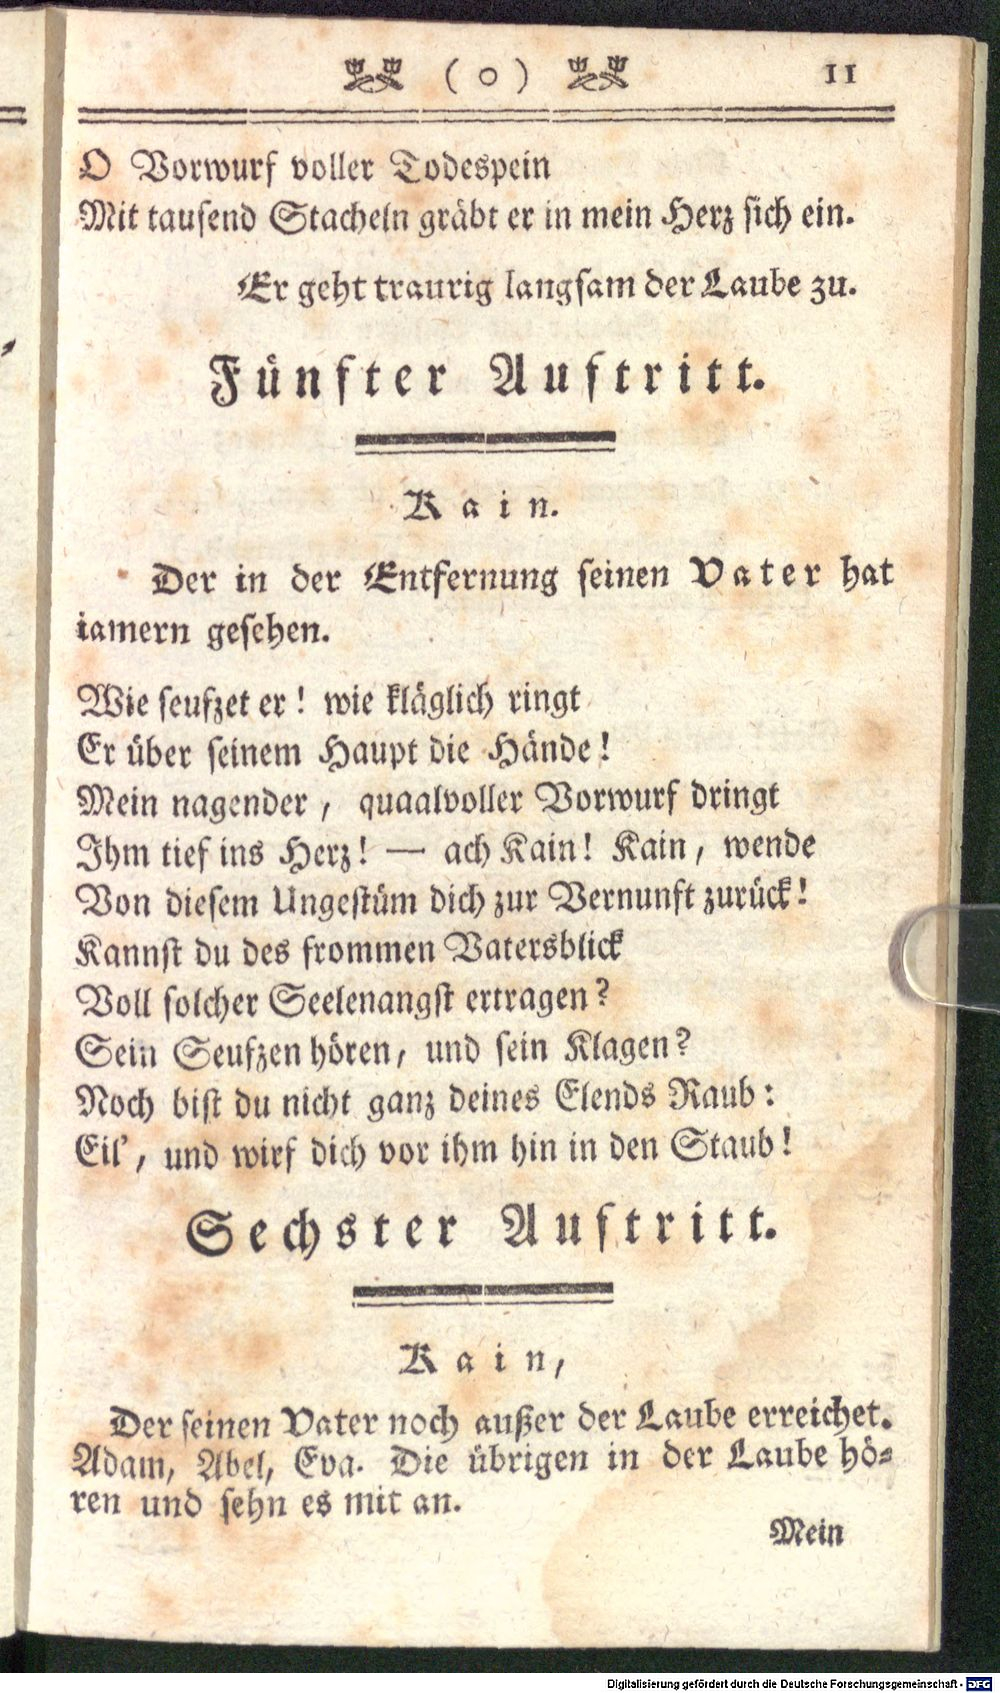 ( o ) 11
O Vorwurf voller Todespein
Mit tausend Stacheln gräbt er in mein Herz sich ein.
Er geht traurig langsam der Laube zu.
Fünfter Auftritt.
Kain.
Der in der Entfernung seinen Vater hat
iamern gesehen.
Wie seufzet er! wie kläglich ringt
Er über seinem Haupt die Hände!
Mein nagender, quaalvoller Vorwurf dringt
Ihm tief ins Herz! — ach Kain! Kain, wende
Von diesem Ungestüm dich zur Vernunft zurück!
Kannst du des frommen Vatersblick
Voll solcher Seelenangst ertragen?
Sein Seufzen hören, und sein Klagen?
Noch bist du nicht ganz deines Elends Raub:
Eil', und wirf dich vor ihm hin in den Staub!
Sechster Auftritt.
Kain,
Der seinen Vater noch außer der Laube erreichet.
Adam, Abel, Eva. Die übrigen in der Laube hö-
ren und sehn es mit an.
Mein
Digitalisierung gefördert durch die Deutsche Forschungsgemeinschaft - DFG